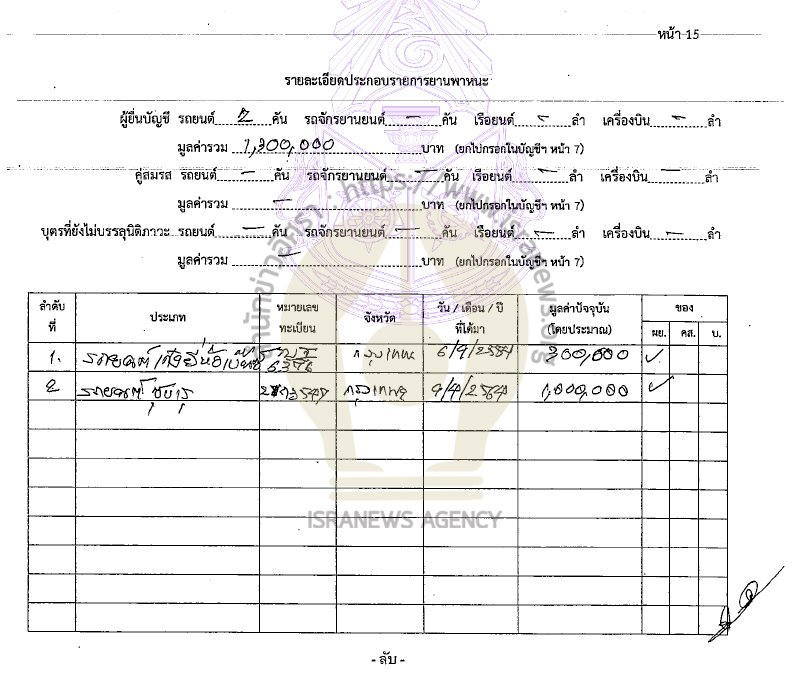 หน้า 15
รายละเอียดประกอบรายการยานพาหนะ
ผู้ยื่นบัญชี รถยนต์ 2 คัน รถจักรยานยนต์ - คัน เรือยนต์ - ลำ เครื่องบิน - ลำ
มูลค่ารวม 1,300,000 บาท (ยกไปกรอกในบัญชีฯ หน้า 7)
คู่สมรส รถยนต์ - คัน รถจักรยานยนต์ - คัน เรือยนต์ - ลำ เครื่องบิน - ลำ
มูลค่ารวม - บาท (ยกไปกรอกในบัญชีฯ หน้า 7)
บุตรที่ยังไม่บรรลุนิติภาวะ รถยนต์ - คัน รถจักรยานยนต์ - คัน เรือยนต์ - ลำ เครื่องบิน - ลำ
มูลค่ารวม - บาท (ยกไปกรอกในบัญชีฯ หน้า 7)
ลำดับที่ ประเภท หมายเลขทะเบียน จังหวัด วัน / เดือน / ปี ที่ได้มา มูลค่าปัจจุบัน (โดยประมาณ) ของ
ผย. คส. บ.
1. รถยนต์เก๋งยี่ห้อเบ๊นซ์ 6396 กรุงเทพ 300,000 ✓
2 รถยนต์ ซูบารุ กรุงเทพ 9/4/2564 1,000,000 ✓
สำนักข่าวอิศรา : https://www.isranews.org
ISRANEWS AGENCY
- ลับ -